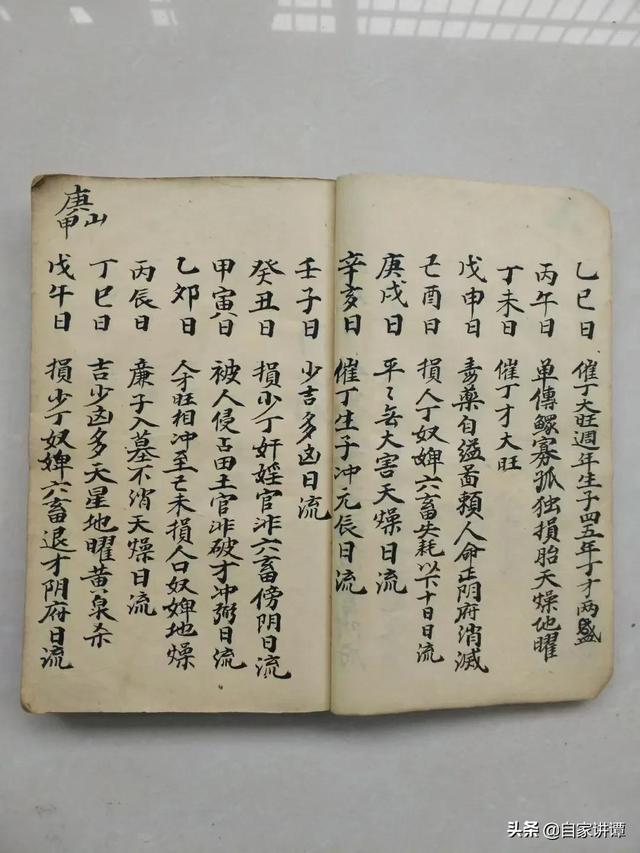 乙巳日 催丁大旺週年生子四五年丁才兩盛
丙午日 单傳鰥寡孤独損胎天燥地曜
丁未日 催丁才大旺
戊申日 毒藥自縊啚頼人命正阴府消滅
己酉日 損人丁奴婢六畜失耗以下十日日流
庚戌日 平々無大害天燥日流
辛亥日 催丁生子冲元辰日流
壬子日 少吉多凶日流
癸丑日 損少丁奸婬官非六畜傍阴日流
甲寅日 被人侵占田土官非破才冲 日流
乙卯日 人才旺相冲至己未損人口奴婢地燥
丙辰日 廉子入墓不消天燥日流
丁巳日 吉少凶多天星地曜黄泉杀
戊午日 損少丁奴婢六畜退才阴府日流
庚甲山
头条 @自家讲谭